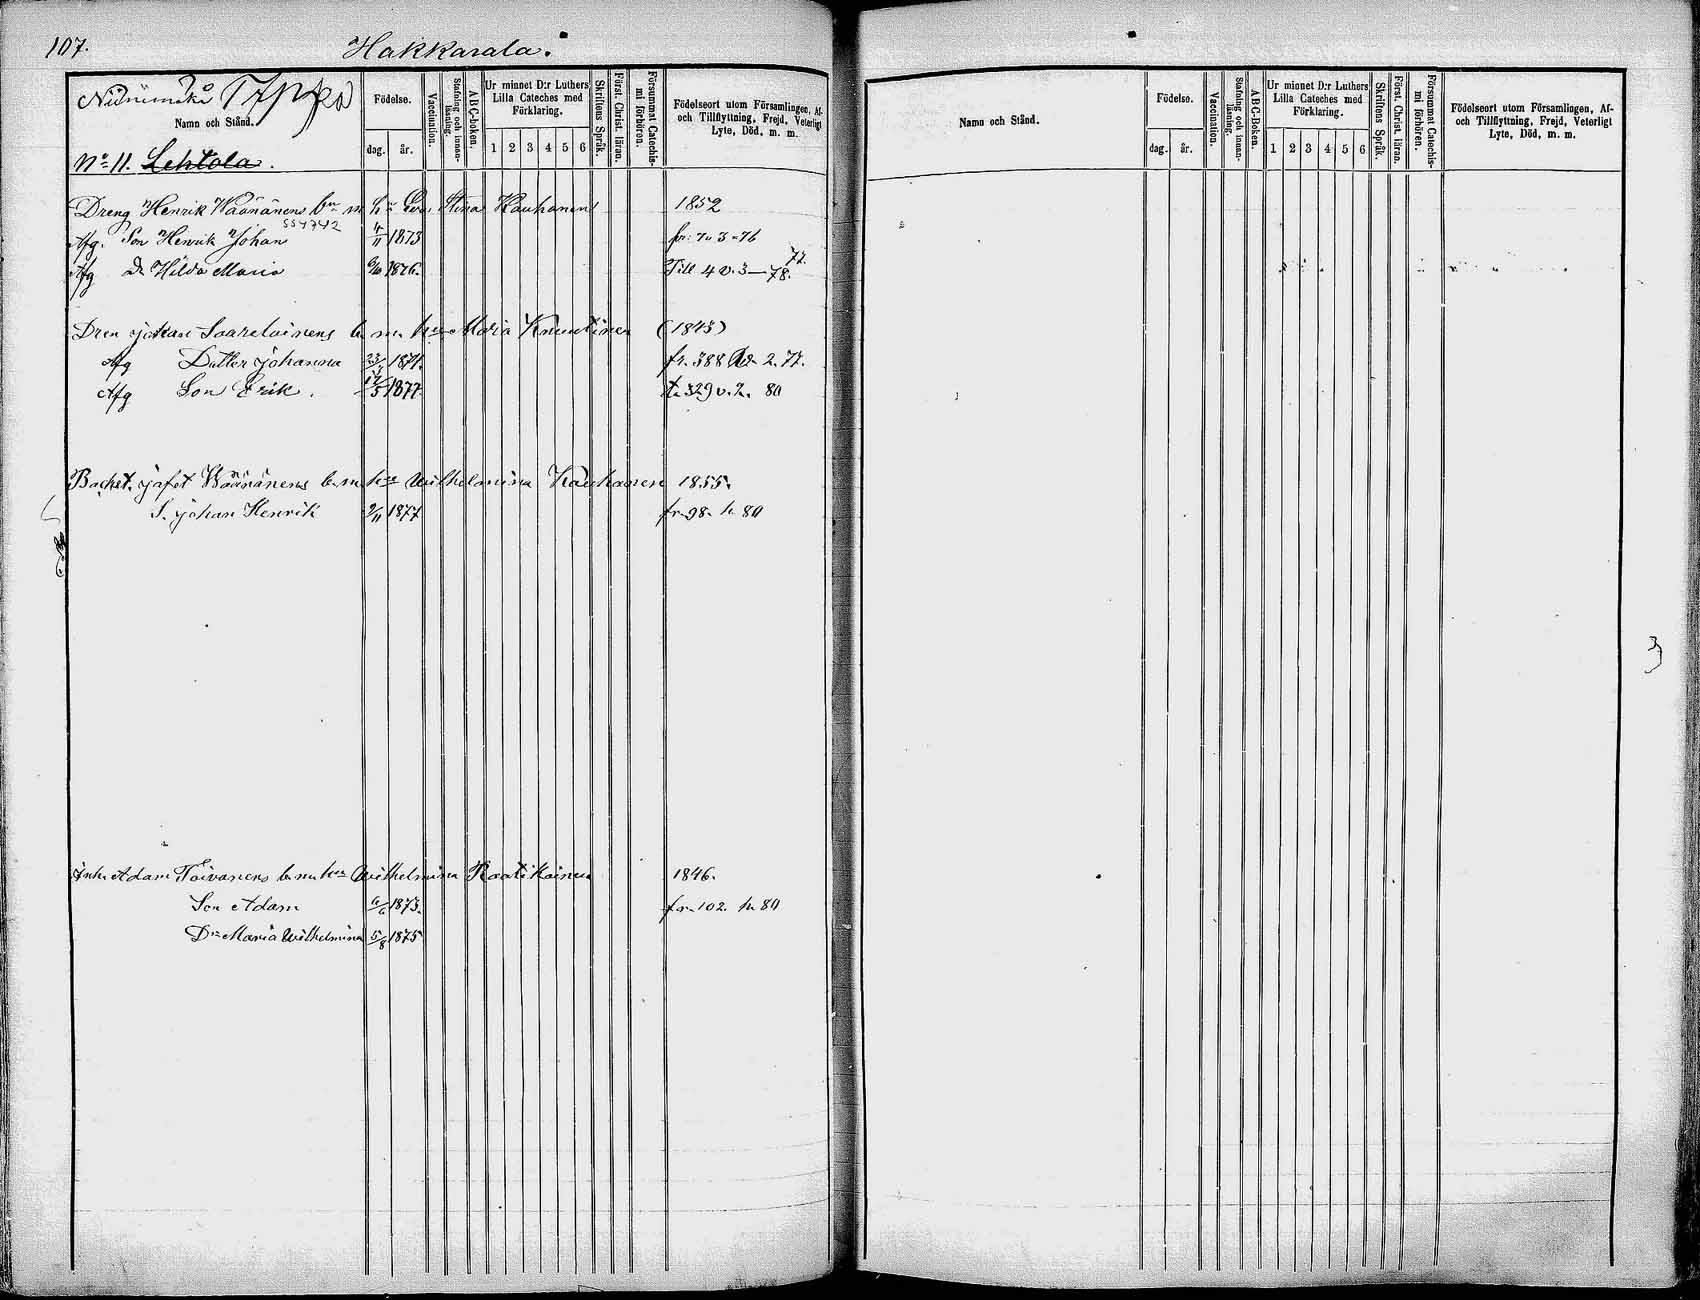 107.
Hakkarala.
Namn och Stånd.
Födelse.
dag.
år.
Vaccination.
Stafning och innanläsning.
ABC-boken.
Ur minnet D:r Luthers Lilla Cateches med Förklaring.
1 2 3 4 5 6
Skriftens Språk.
Först. Christ. läran.
Försummat Catechismi förhören.
Födelseort utom Församlingen, Af- och Tillflyttning, Frejd, Veterligt Lyte, Död, m. m.
No 11. Lehtola.
Dreng Henrik Väänänens m hu Eva Stina Kauhanen 1852
554742
Afg. Son Henrik Johan 4/11 1873 fr: 7 v 3-76
Afg Dr Hilda Maria 6/10 1876. Till 4 v. 3—78. 77
Dren johan Saarelainens b. m. hu Maria Knuutinen (1843)
Afg Dotter johanna 23/1 1874. fr. 388 v 2. 77.
Afg Son Erik. 12/5 1877 t. 329 v. 2. 80
Backst. jafet Väänänens b. m. hu Wilhelmina Kauhanen 1855.
S. johan Henrik 9/11 1877 fr. 98. h 80
Inh. Adam Toivanens b. m. hu Wilhelmina Raatikainen 1846.
Son Adam 6/6 1873. fr. 102. h 80
Dr Maria Wilhelmina 5/8 1875
Namn och Stånd.
Födelse.
dag.
år.
Vaccination.
Stafning och innanläsning.
ABC-boken.
Ur minnet D:r Luthers Lilla Cateches med Förklaring.
1 2 3 4 5 6
Skriftens Språk.
Först. Christ. läran.
Försummat Catechismi förhören.
Födelseort utom Församlingen, Af- och Tillflyttning, Frejd, Veterligt Lyte, Död, m. m.